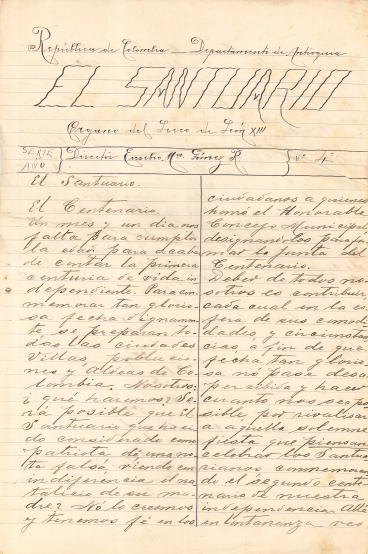 República de Colombia — Departamento de Antioquia
EL SANTUARIO
Organo del Liceo de León XIII
SERIE
AÑO
Director Eusebio Ma. Gómez R.
Nº 4º
El Santuario.
El Centenario.
Un mes y un dia nos
falta para cumplir
la edad para acabar
de contar la primera
centuria de vida in
dependiente. Para con
memorar tan glorio-
sa fecha dignamen
te se preparan to-
das las ciudades
villas, poblacio-
nes y Aldeas de Co-
lombia. Nosotros:
i qué haremos? Se
rá posible que El
Santuario que ha si
do considerado como
patriota dé una no
ta falsa, viendo con
indiferencia el na
talicio de su ma-
dre? No lo creemos
y tenemos fé en los
ciudadanos a quienes
honró el Honorable
Concejo Municipal,
designándolos para for
mar la junta del
Centenario.
Deber de todos no-
sotros es contribuir,
cada cual en la es
fera de sus comodi
dades, y circunstan
cias, á fin de que
fecha tan glorio-
sa no pase desa-
percibida y hacer
cuanto nos sea po
sible por rivalizar
a aquella solemne
fiesta que piensan
celebrar los Santua
rianos conmemoran
do el segundo cente
nario de nuestra
independencia. Allá
en lontananza veo